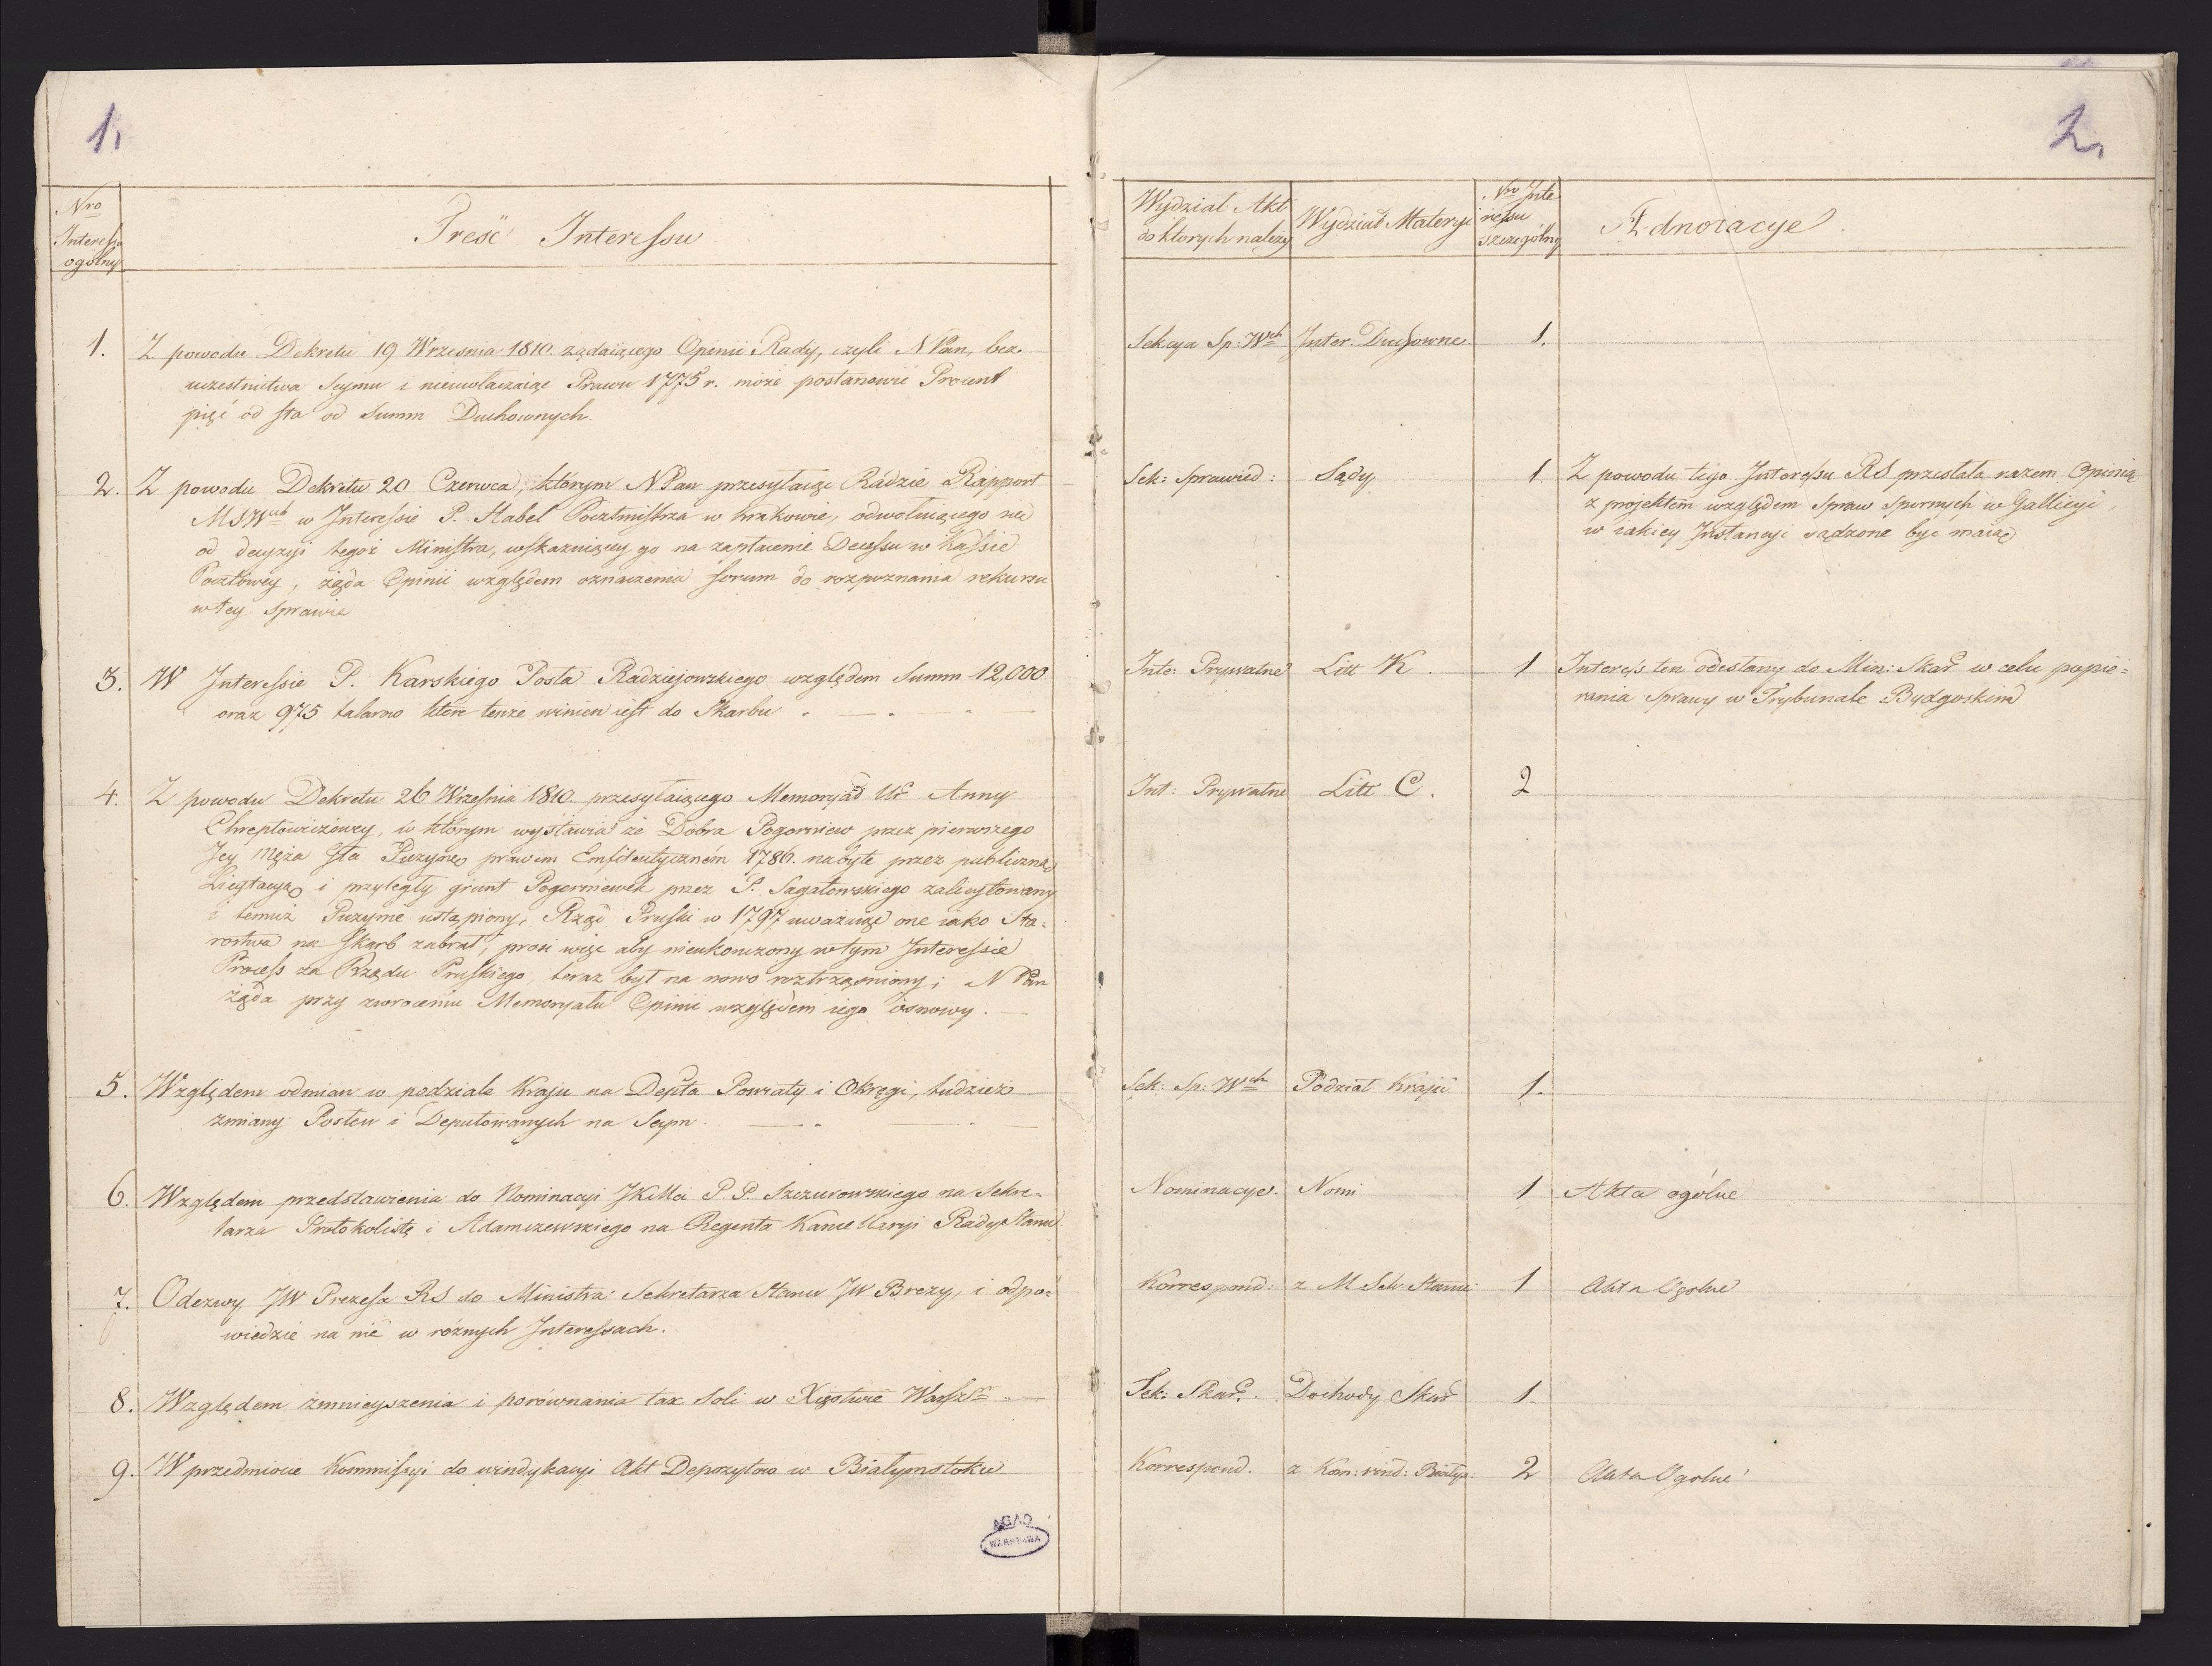 1.
2.
Nro
Interessu
ogólny
Treść Interessu
Wydział Akt
do ktorych należy
Wydział Materyi
Nro Inte
ressu
szczególny
Adnotacye
1. Z powodu Dekretu 19 Września 1810. żądaiącego Opinii Rady, czyli N Pan, bez
uczestnictwa Seymu i nieuwłaczaiąc Prawu 1775 r. może postanowić Procent
pięć od sta od Summ Duchownych.
Sekcya Sp: Wch Inter: Duchowne 1.
2. Z powodu Dekretu 20 Czerwca, którym N Pan przesyłaiąc Radzie Rapport
MSWch w Interessie P. Habel Pocztmistrza w Krakowie, odwołuiącego się
od decyzyi tegoż Ministra, wskazuiącey go na zapłacenie Decessu w Kassie
Pocztowey, żąda Opinii względem oznaczenia forum do rozpoznania rekursu
w tey sprawie
Sek: Sprawied: Sądy 1. Z powodu tego Interessu RS przesłała razem Opinią
z projektem względem Spraw Spornych w Gallicyi,
w iakiey Instancyi sądzone być maią
3. W Interessie P. Karskiego Posła Radziejowskiego względem Summ 12,000
oraz 975 talarow które tenże winien iest do Skarbu
Inte: Prywatne Litt K. 1 Interess ten odesłany do Min: Skar w celu popie=
rania sprawy w Trybunale Bydgoskim
4. Z powodu Dekretu 26 Września 1810. przesyłaiącego Memoryał Ur Anny
Chreptowiczowey, w którym wystawia że Dobra Pogorniew przez pierwszego
Jey Męża Puzynę prawem Emfiteutyczném 1786. nabyte przez publiczną
Licytacyą i przyległy grunt Pogerniewek przez P. Sagatowskiego zalicytowany
i temuż Puzynie ustąpiony, Rząd Pruski w 1797 uważaiąc one iako Sta=
rostwa na Skarb zabrał, prosi więc aby nieukończony w tym Interessie
Process za Rządu Pruskiego, teraz był na nowo roztrząśniony; N Pan
żąda przy zwroceniu Memoryału Opinii względem iego osnowy.
Int: Prywatne Litt C. 2
5. Względem odmian w podziale Kraju na Depta Powiaty i Okręgi, tudzież
zmiany Posłow i Deputowanych na Seym.
Sek: Sp: Wch Podział Kraju 1.
6. Względem przedstawienia do Nominacyi JKMci P.P. Szczurowskiego na Sekre=
tarza Protokolistę i Adamczewskiego na Regenta Kancellaryi Rady Stanu
Nominacye. Nomi 1 Akta ogólne
7. Odezwy JW Prezesa RS do Ministra Sekretarza Stanu JW Brezy, i odpo=
wiedzie na nie w róznych Interessach.
Korrespond: z M Sek: Stanu 1 Akta Ogolne
8. Względem zmnieyszenia i porównania tax Soli w Xięstwie Warszm
Sek: Skar. Dochody Skar 1.
9. W przedmiocie Kommissyi do windykacyi Akt Depozytow w Białymstoku
Korrespond. z Kom: wind: Białys: 2 Akta Ogolne
AGAD
WARSZAWA